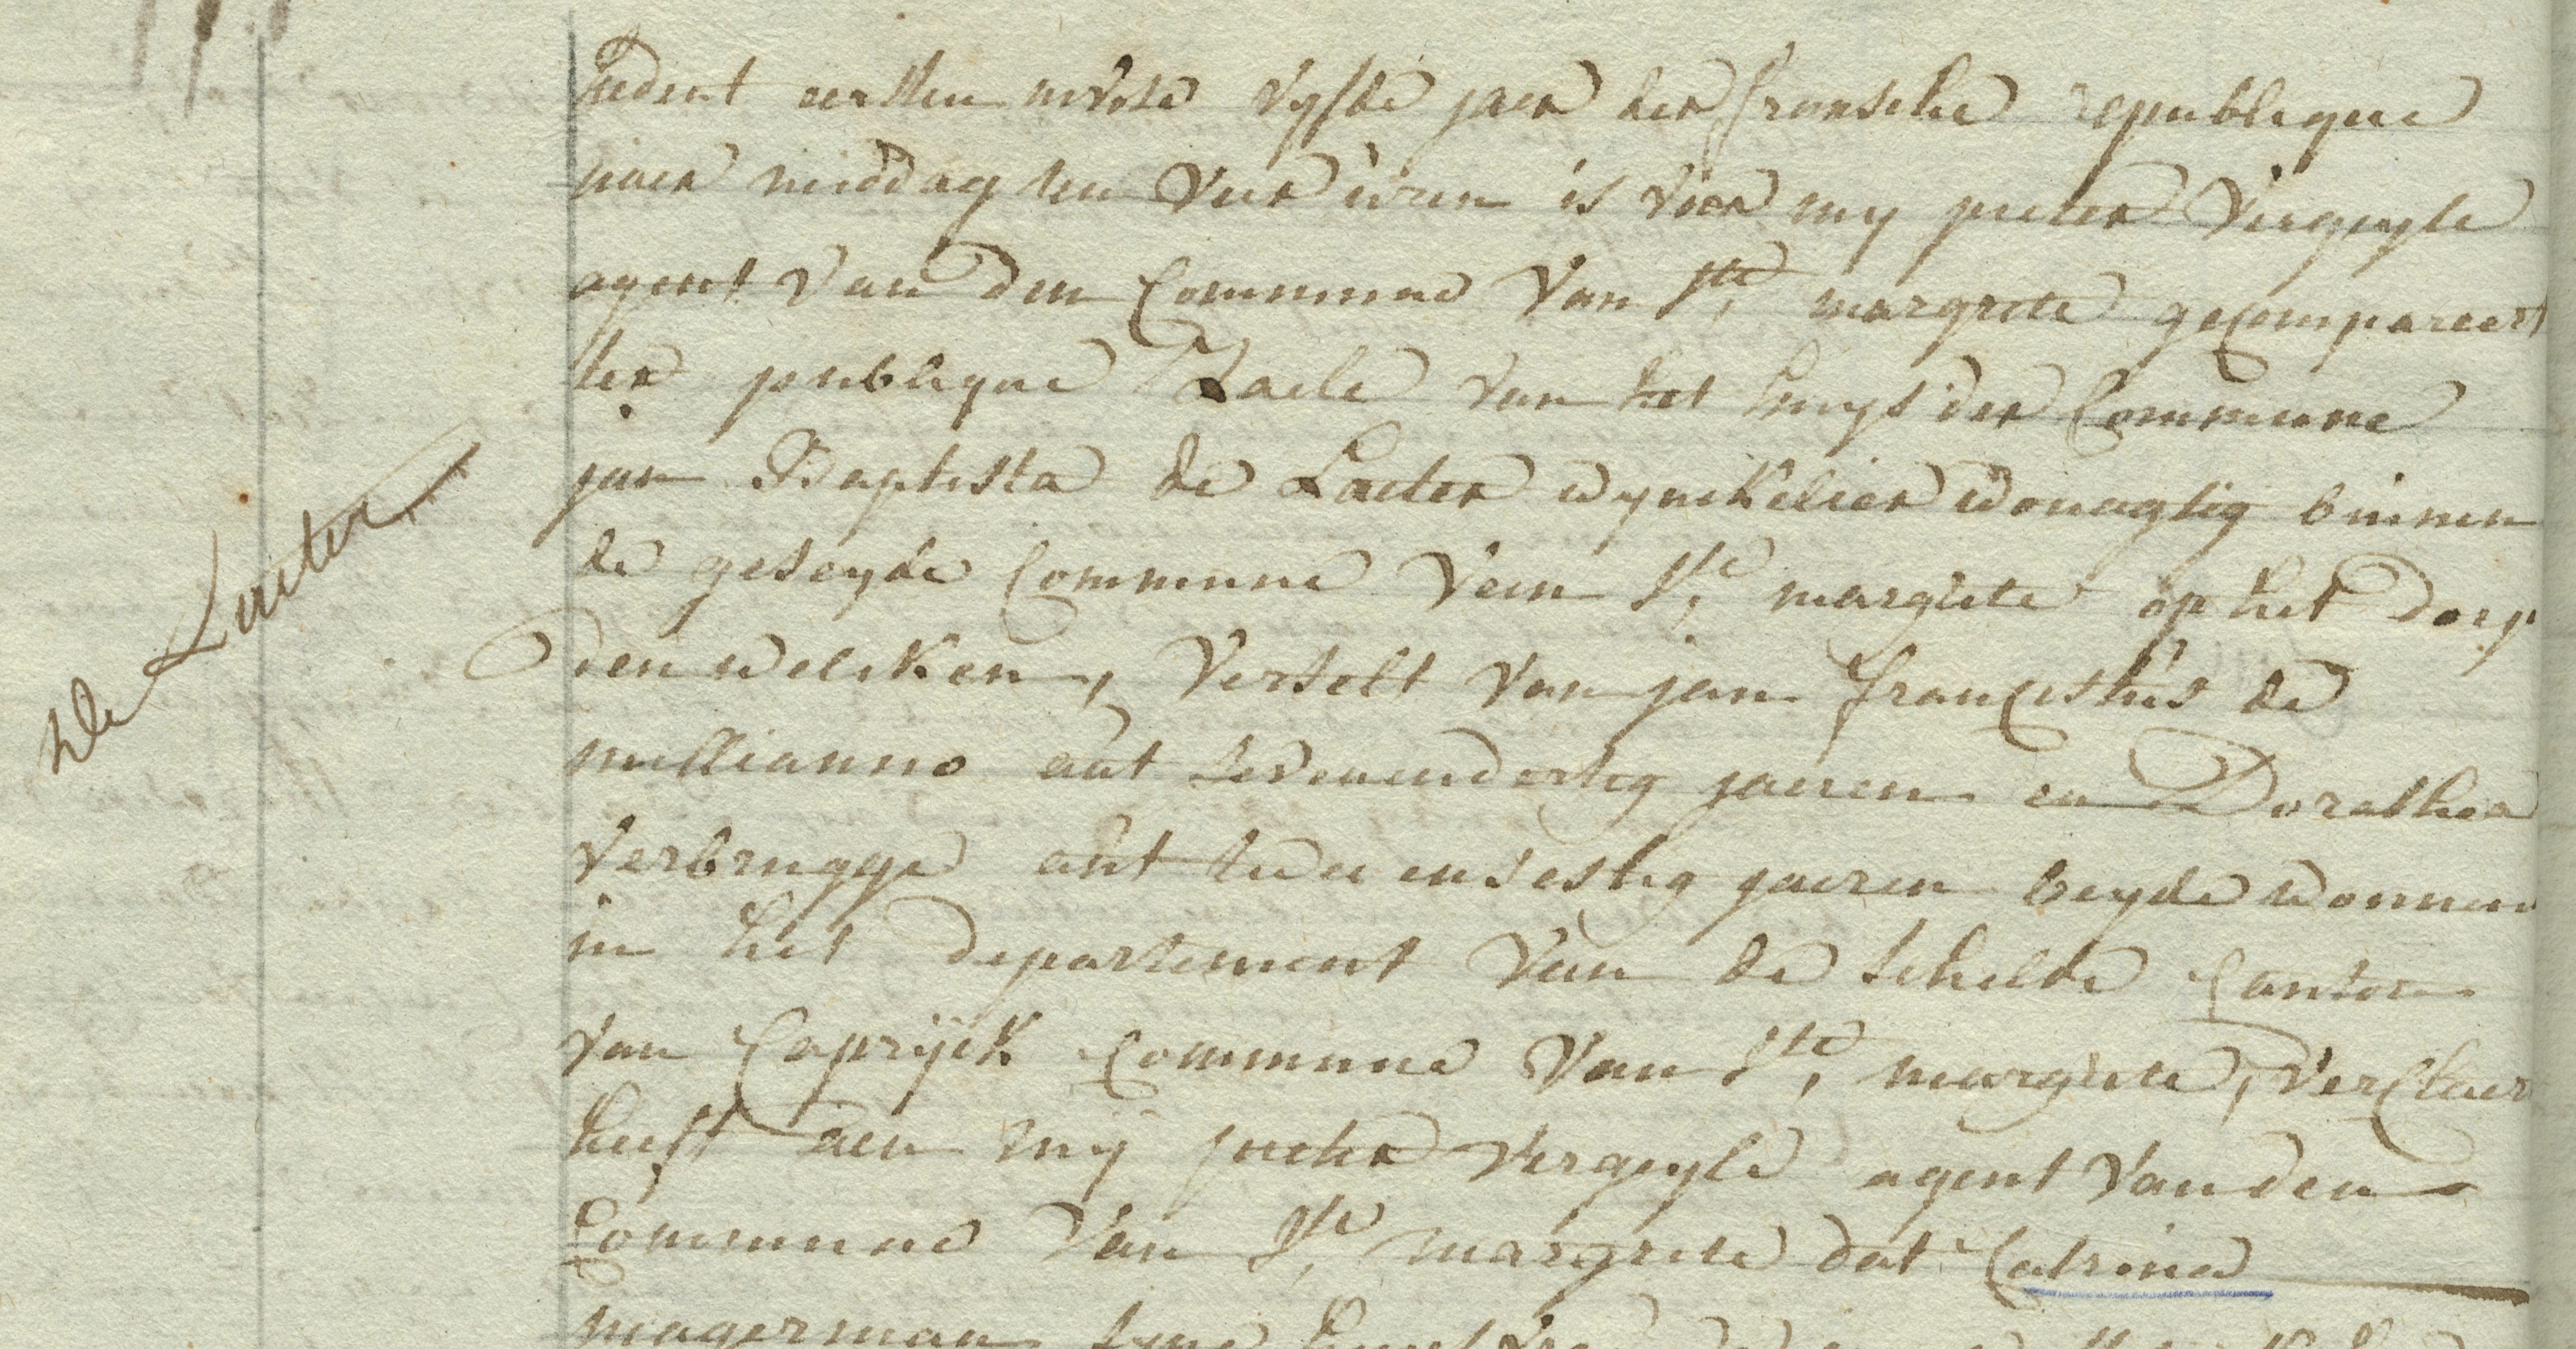 hedent eersten nivose vyfde jaer der fransche republique
naer middag ten vier uren is voor my pieter Vergeyle
agent van den Commune van Ste, margrete gecompareert
ter publique Zaele van het huys der Commune
jan Baptista de Laeter wynkelier wonagtig binnen
de geseyde Commune van Ste, margrete op het dorp
den welcken, verselt van jan franciskus de
millianno aut sevenendertig jaeren en Dorathea
verbrugge aut twee en sestig jaeren beyde wonnen
in het departement van de schelde Canton
van Capryck Commune van Ste, margrete, verclaer
heeft aen my pieter vergeyle agent van den
Commune van Ste, margrete dat Catrina
magerman syne
de Laeter